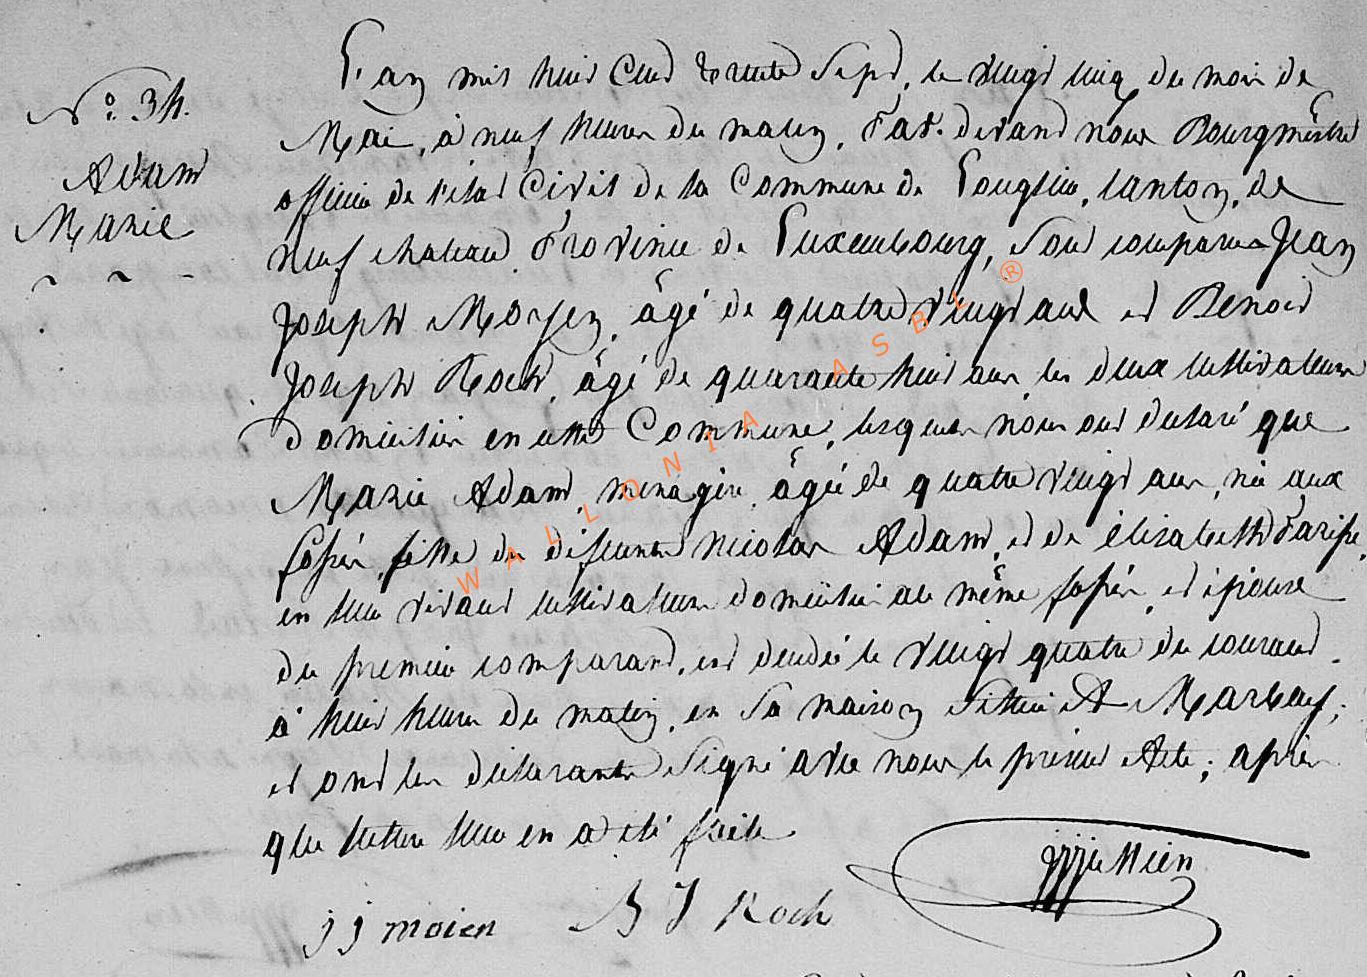 N.o 34.
Adam
Marie
L'an mil huit Cent trente Sept, le vingt cinq du mois de
Mai, à neuf heures du matin, Par devant nous Bourgmêstre
officier de l'état Civil de la Commune de Longlier, Canton, de
neufchateau Province de Luxembourg, Sont comparus Jean
Joseph Moyen, âgé de quatre vingt ans et Benoit
Joseph Roch, âgé de quarante huit ans, les deux cultivateurs
domiciliés en cette Commune, lesquels nous ont déclaré que
Marie Adam, menagère, âgée de quatre vingt ans, née aux
fossés, fille des défunts Nicolas Adam, et de élisabeth Parisse,
en leur vivant cultivateurs domiciliés au même fossés, et épouse
du premier comparant, est décédée le vingt quatre du courant,
à huit heures du matin, en Sa maison Située A Marbay;
et ont les déclarants Signé avec nous le présent Acte; après
que lecture leur en a été faite
jj moien B J Roch
WALLONIA ASBL ®